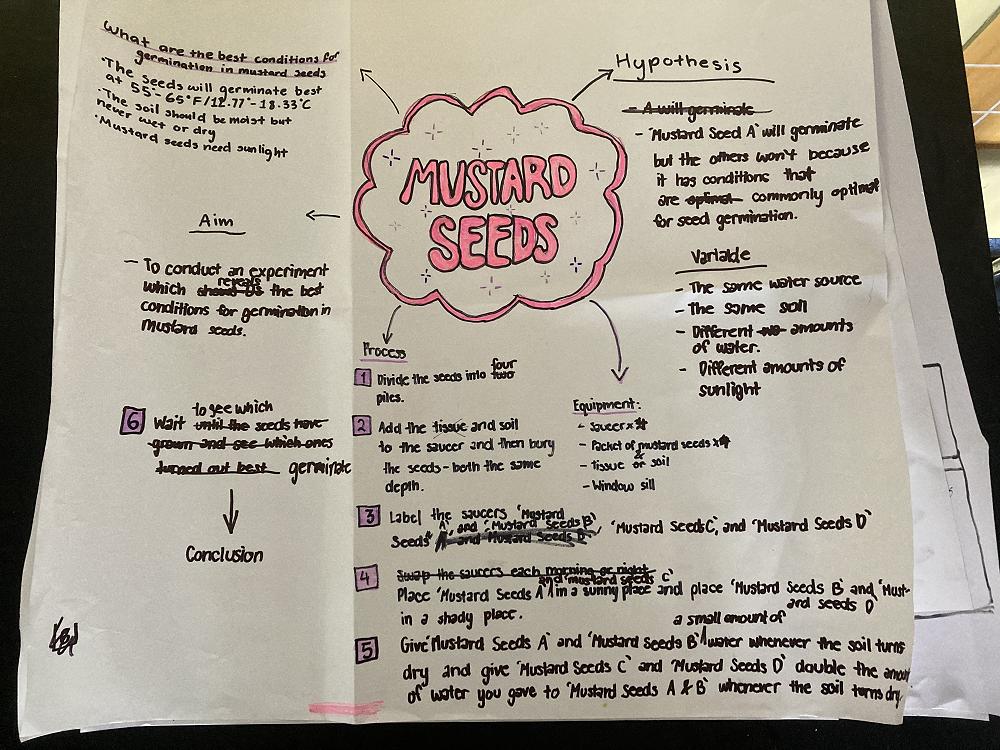 What are the best conditions for
germination in mustard seeds
·The seeds will germinate best
at 55°- 65°F/12.77°- 18.33°C
·The soil should be moist but
never wet or dry
·Mustard seeds need sunlight
Aim
- To conduct an experiment
which should be reveals the best
conditions for germination in
mustard seeds.
MUSTARD
SEEDS
Hypothesis
- A will germinate
- 'Mustard Seed A' will germinate
but the others won't because
it has conditions that
are optimal commonly optimal
for seed germination.
Variable
- The same water source
- The same soil
- Different no amounts
of water.
- Different amounts of
sunlight
Process
1 Divide the seeds into two four
piles.
2 Add the tissue and soil
to the saucer and then bury
the seeds - both the same
depth.
Equipment:
- saucer x4
- Packet of mustard seeds x4
- Tissue or & soil
- Window sill
3 Label the saucers 'Mustard
Seeds' A' and 'Mustard Seeds B', 'Mustard Seeds C', and 'Mustard Seeds D'
A' and Mustard Seeds B
4 Swap the saucers each morning or night
Place 'Mustard Seeds A' and 'mustard seeds C' in a sunny place and place 'Mustard Seeds B' and 'Must-
ard seeds D'
in a shady place.
5 Give 'Mustard Seeds A' and 'Mustard Seeds B' a small amount of water whenever the soil turns
dry and give 'Mustard Seeds C' and 'Mustard Seeds D' double the amount
of water you gave to 'Mustard Seeds A & B' whenever the soil turns dry
6 Wait until the seeds have to see which
grown and see which ones
turned out best germinate
Conclusion